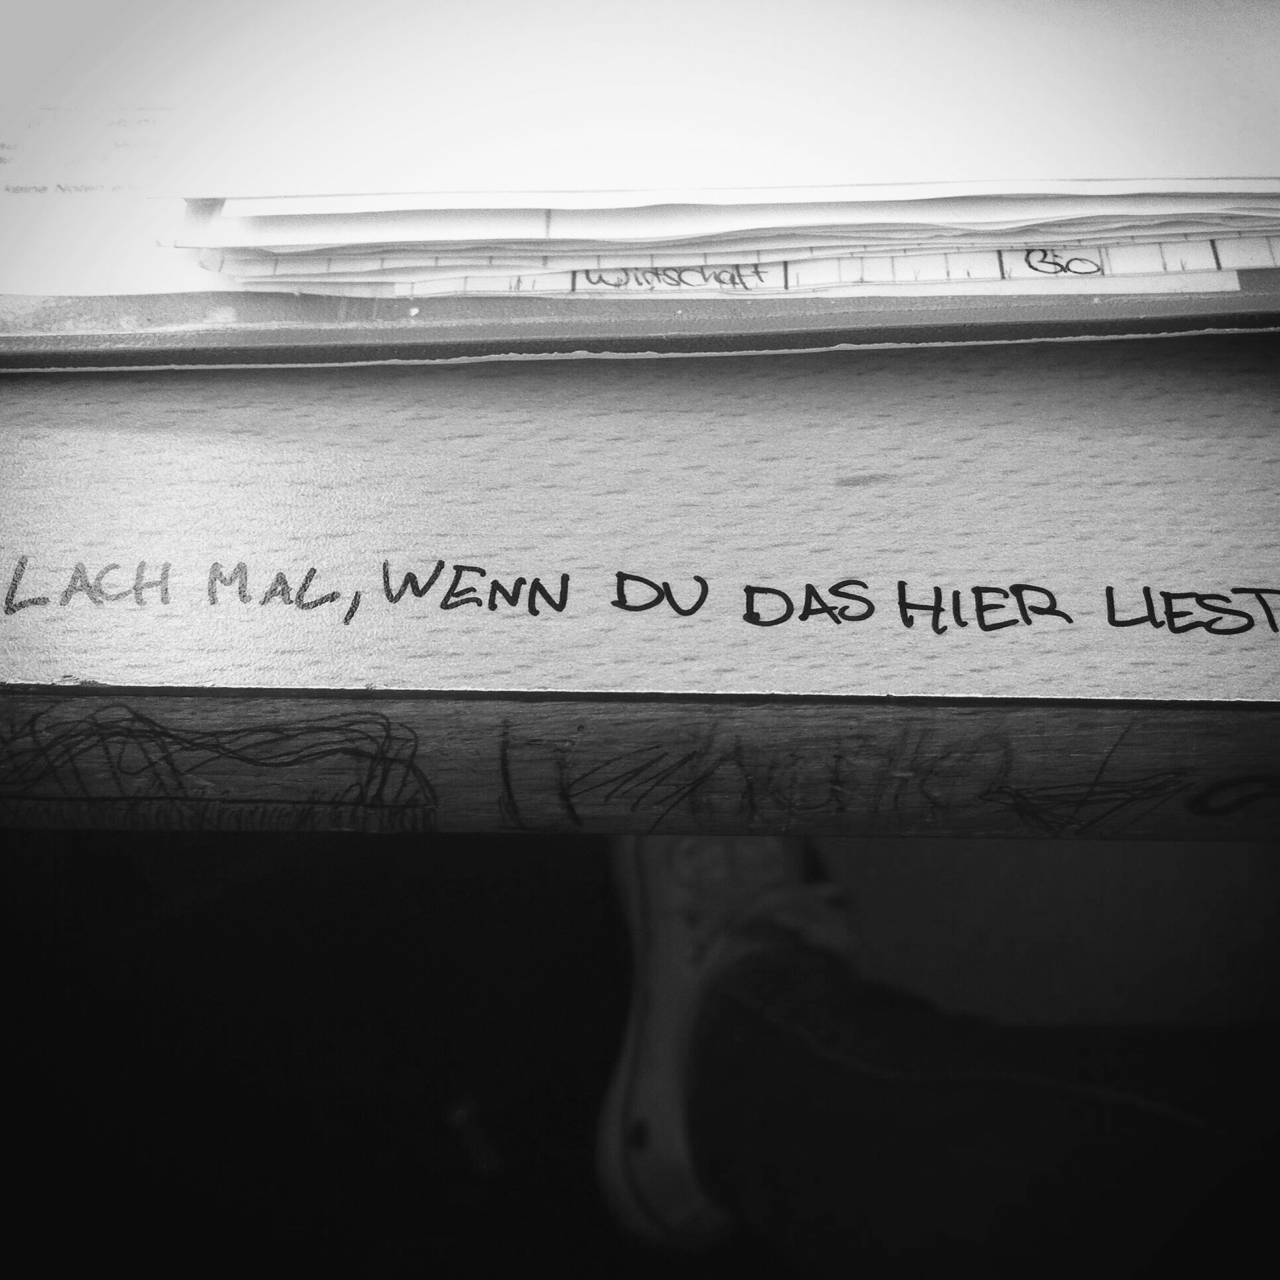 keine Noten
Wirtschaft Bio
LACH MAL, WENN DU DAS HIER LIEST